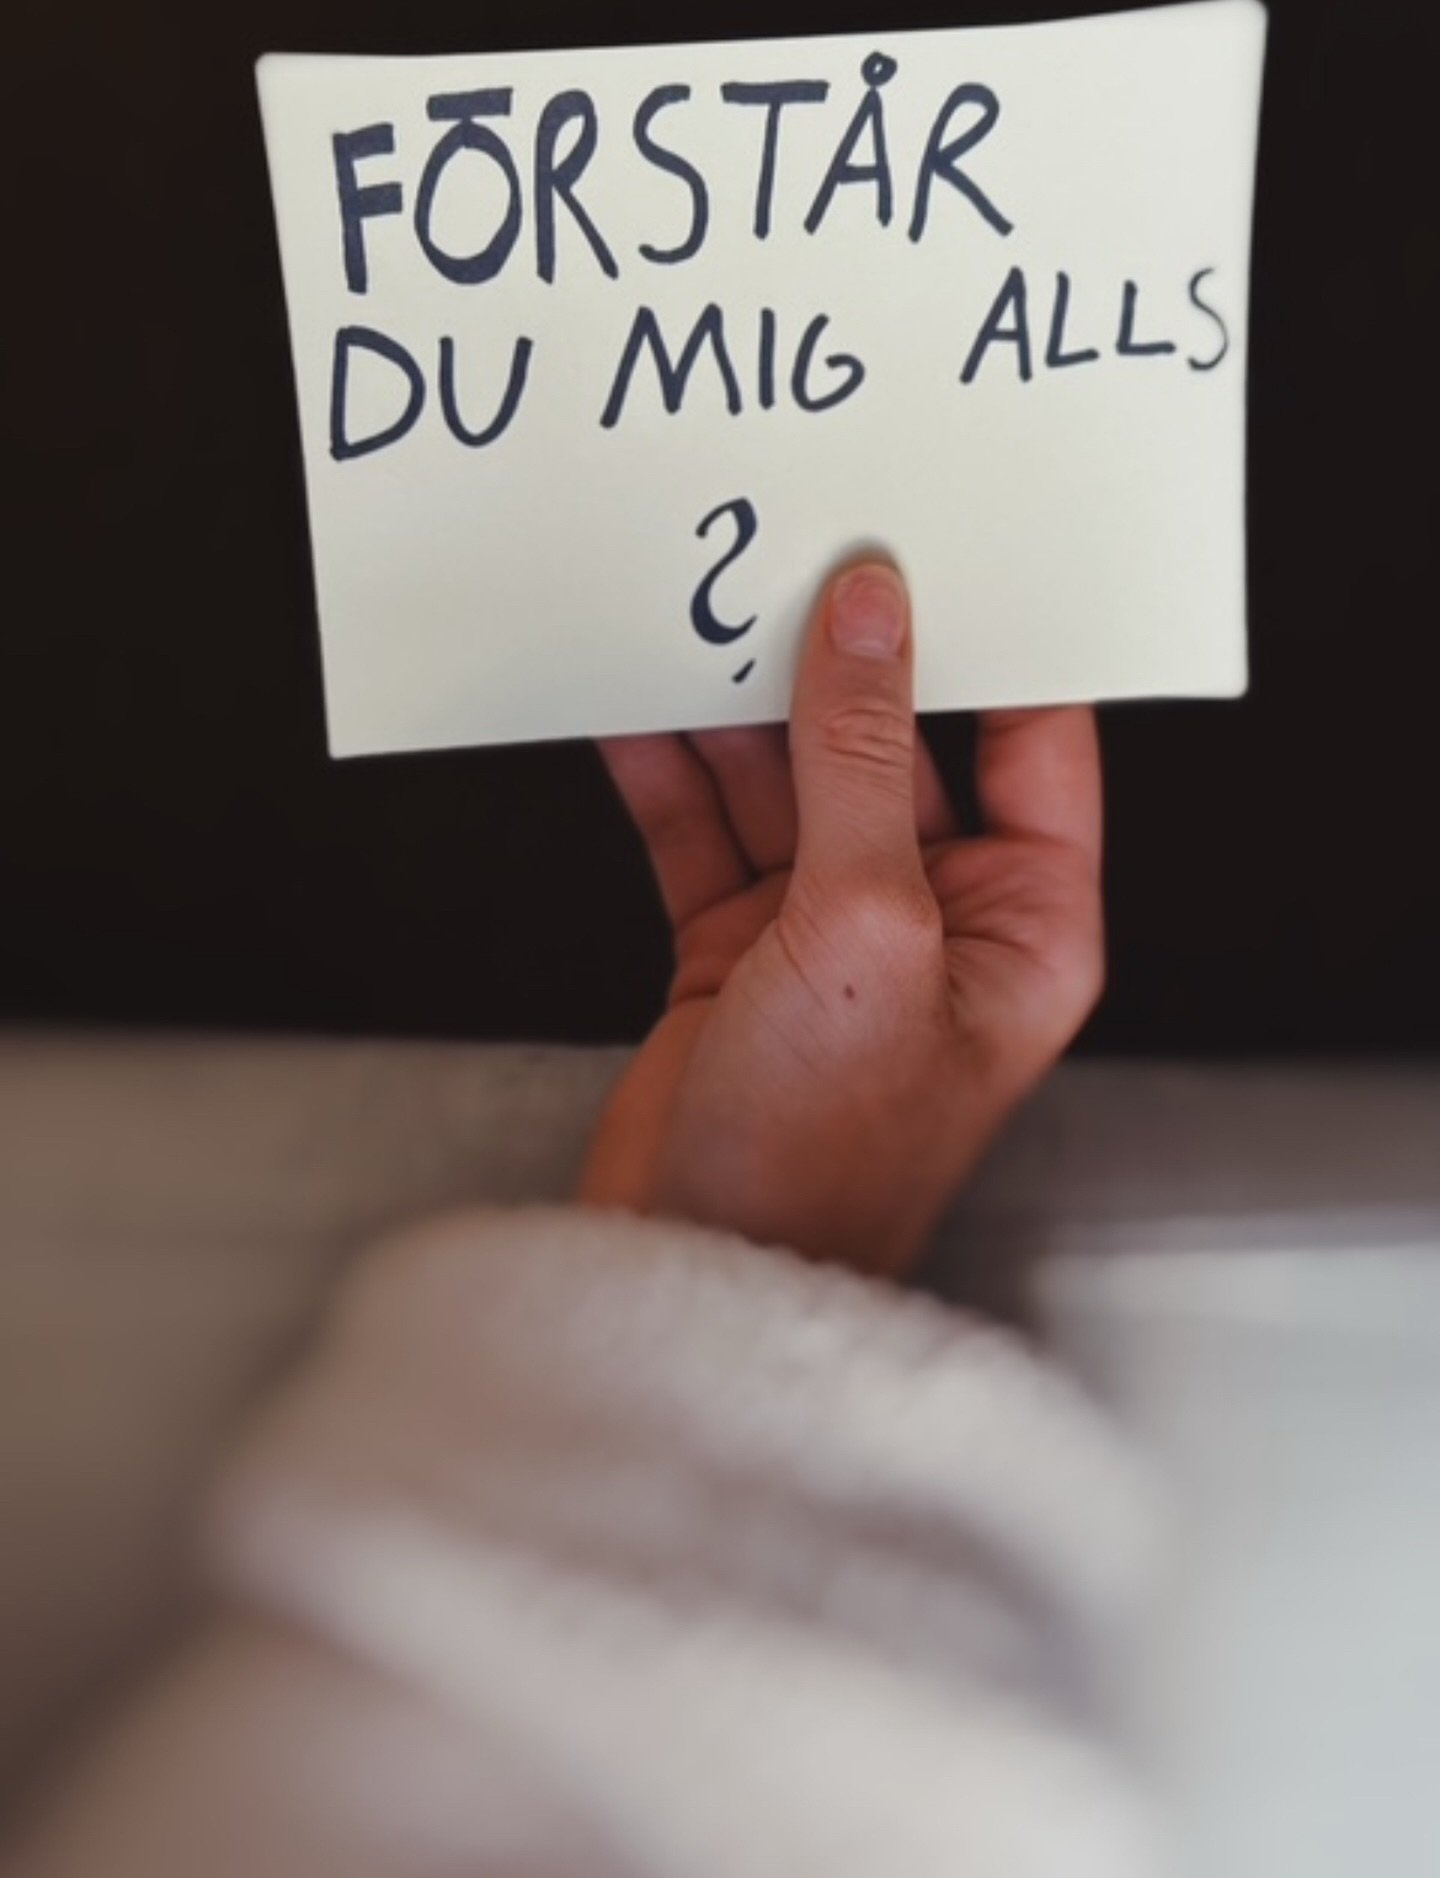 FŌRSTÅR
DU MIG ALLS
?